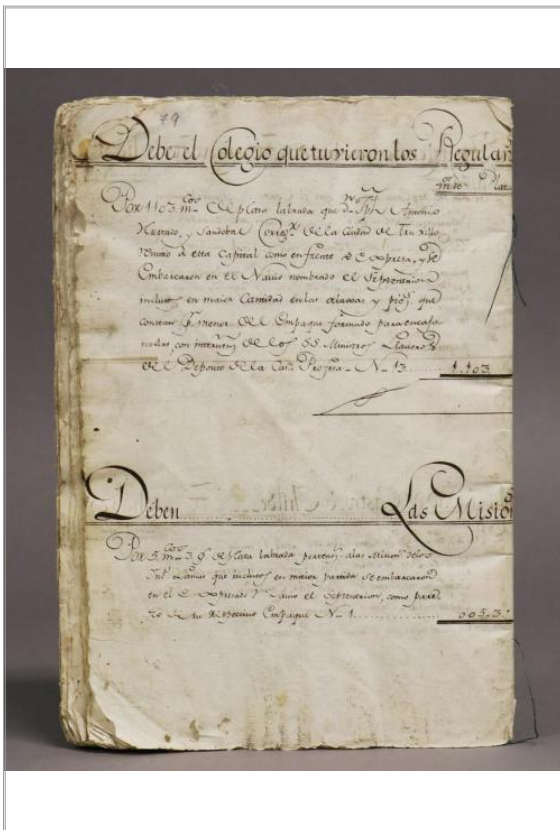 79
Debe el Colegio que tuvieron los Regular
mr.s de Plat.
Por 1103 m.cos de plata labrada que d.n Antonio
Hurtado, y Sandobal Correg.r de la Ciudad de Truxillo
remitió à esta Capital como enfrente se expresa, y se
Embarcaron en el Navio nombrado el Septentrion
inclusos en maior Cantidad en las alaxas y piez.s que
constan p.r menor del Empaque formado para encaxo
narlas, con interven.n de los SS. Ministros Llaveros
del Deposito de la Casa Profesa - N. 13. 1.103.
Deben Las Mision
Por 5 m.cos 3 o.s de plata labrada perten.s a las Mision.s delos
que inclusos en maior partida se embarcaron
en el Expresado Navio el Septentrion, como pare
ze de su respectivo Empaque N. 1. 005.3.